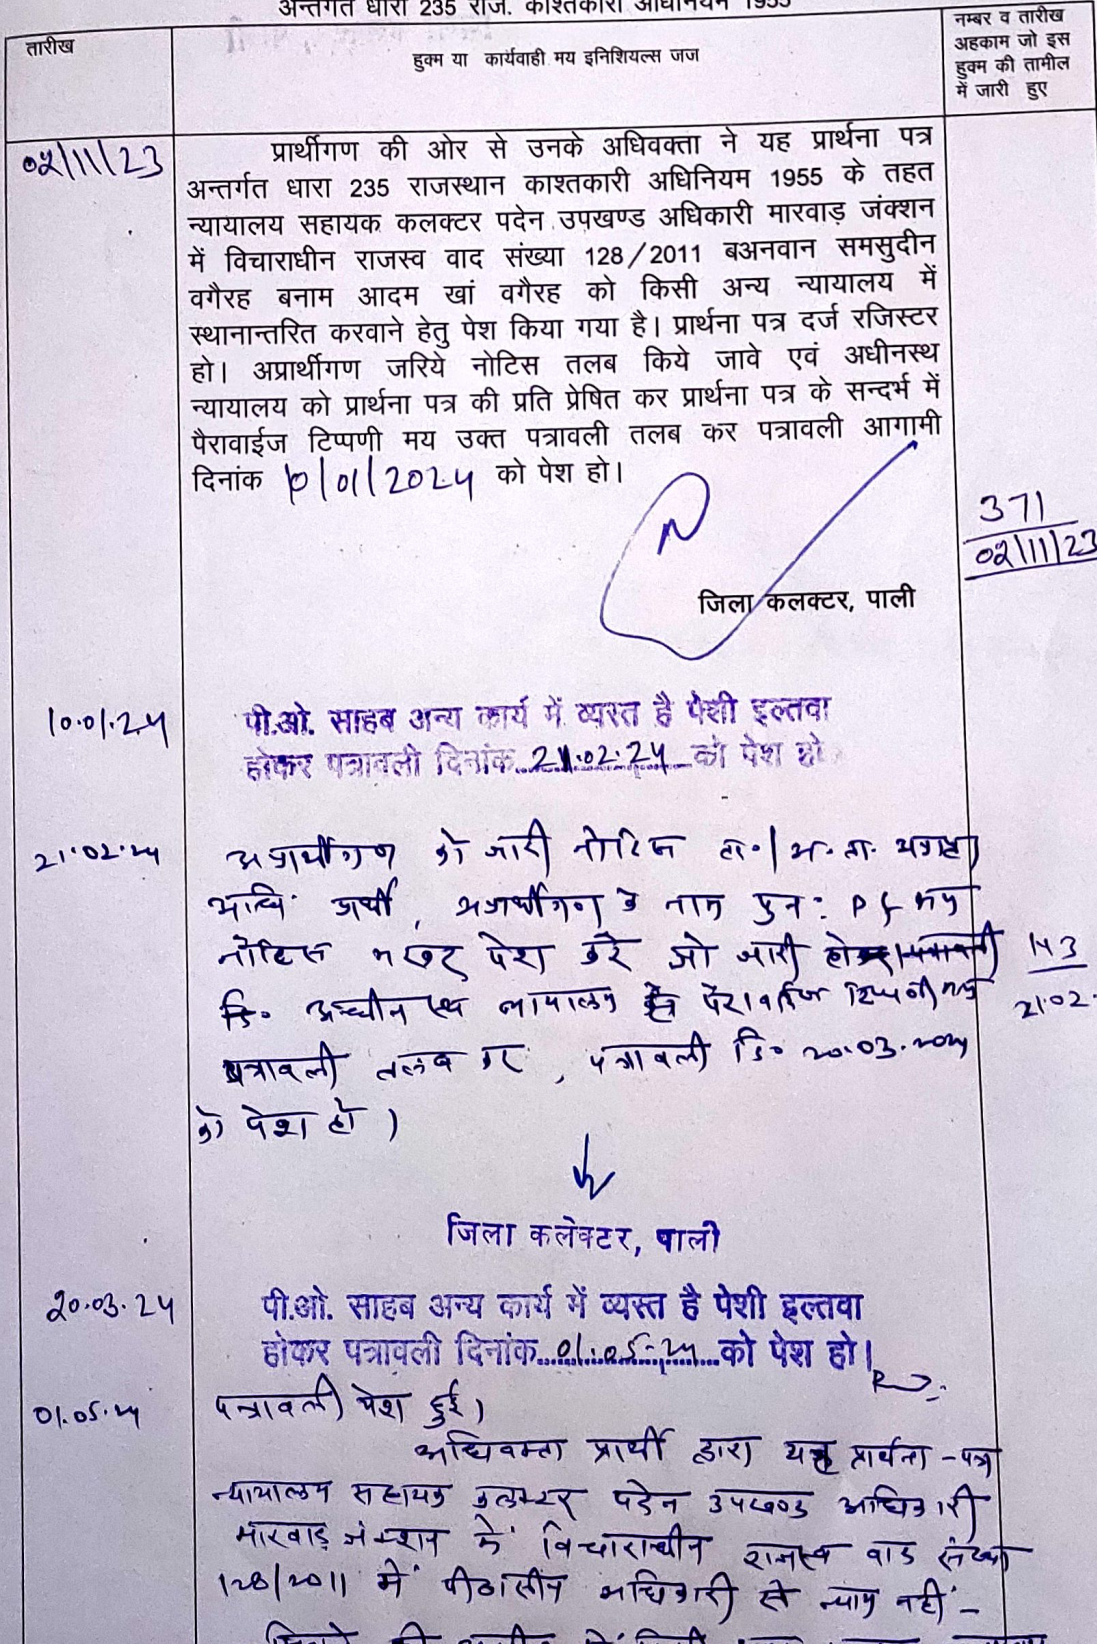 अन्तर्गत धारा 235 राज. काश्तकारी अधिनियम 1955
तारीख
हुक्म या कार्यवाही मय इनिशियल्स जज
नम्बर व तारीख
अहकाम जो इस
हुक्म की तामील
में जारी हुए
02/11/23
प्रार्थीगण की ओर से उनके अधिवक्ता ने यह प्रार्थना पत्र
अन्तर्गत धारा 235 राजस्थान काश्तकारी अधिनियम 1955 के तहत
न्यायालय सहायक कलक्टर पदेन उपखण्ड अधिकारी मारवाड़ जंक्शन
में विचाराधीन राजस्व वाद संख्या 128/2011 बअनवान समसुदीन
वगैरह बनाम आदम खां वगैरह को किसी अन्य न्यायालय में
स्थानान्तरित करवाने हेतु पेश किया गया है। प्रार्थना पत्र दर्ज रजिस्टर
हो। अप्रार्थीगण जरिये नोटिस तलब किये जावे एवं अधीनस्थ
न्यायालय को प्रार्थना पत्र की प्रति प्रेषित कर प्रार्थना पत्र के सन्दर्भ में
पैरावाईज टिप्पणी मय उक्त पत्रावली तलब कर पत्रावली आगामी
दिनांक 10/01/2024 को पेश हो।
371
02/11/23
जिला कलक्टर, पाली
10.01.24
पी.ओ. साहब अन्य कार्य में व्यस्त है पेशी इल्तवा
होकर पत्रावली दिनांक 21.02.24 को पेश हो
21.02.24
अप्रार्थीगण को जारी नोटिस
प्रार्थी, अप्रार्थीगण के नाम पुन: P f मय
नोटिस पेश करे जो जारी हो
143
21.02.
अधीनस्थ न्यायालय से पैरावाईज टिप्पणी मय
पत्रावली तलब कर, पत्रावली दि॰ 20.03.2024
को पेश हो।
जिला कलेक्टर, पाली
20.03.24
पी.ओ. साहब अन्य कार्य में व्यस्त है पेशी इल्तवा
होकर पत्रावली दिनांक 01.05.24 को पेश हो।
01.05.24
पत्रावली पेश हुई।
अधिवक्ता प्रार्थी द्वारा यह प्रार्थना-पत्र
न्यायालय सहायक कलक्टर पदेन उपखण्ड अधिकारी
मारवाड़ जंक्शन में विचाराधीन राजस्व वाद संख्या
128/2011 में पीठासीन अधिकारी से न्याय नहीं-